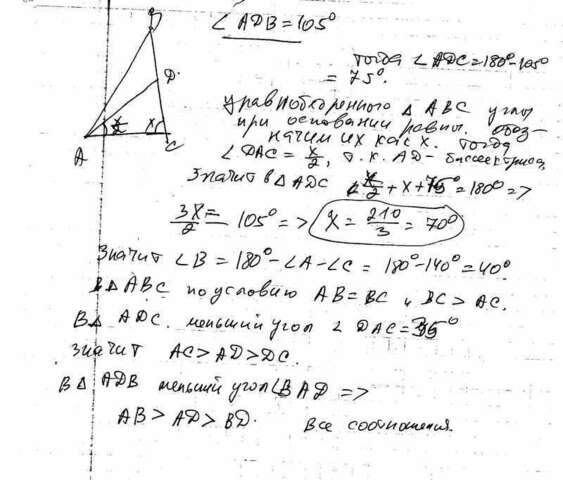 B
∠ADB=105°
D
A
C
x/2
x
тогда ∠ADC=180°-105°
= 75°.
У равнобедренного Δ ABC углы
при основании равны. обоз-
начим их как x. тогда
∠DAC = x/2, т.к. AD - биссектриса,
Значит в Δ ADC x/2 + x + 75° = 180° =>
3x/2 = 105° => x = 210/3 = 70°
Значит ∠B = 180° - ∠A - ∠C = 180° - 140° = 40°
В Δ ABC по условию AB = BC и BC > AC.
В Δ ADC. меньший угол ∠DAC = 35°
Значит AC > AD > DC.
В Δ ADB меньший угол ∠BAD =>
AB > AD > BD. Все соотношения.